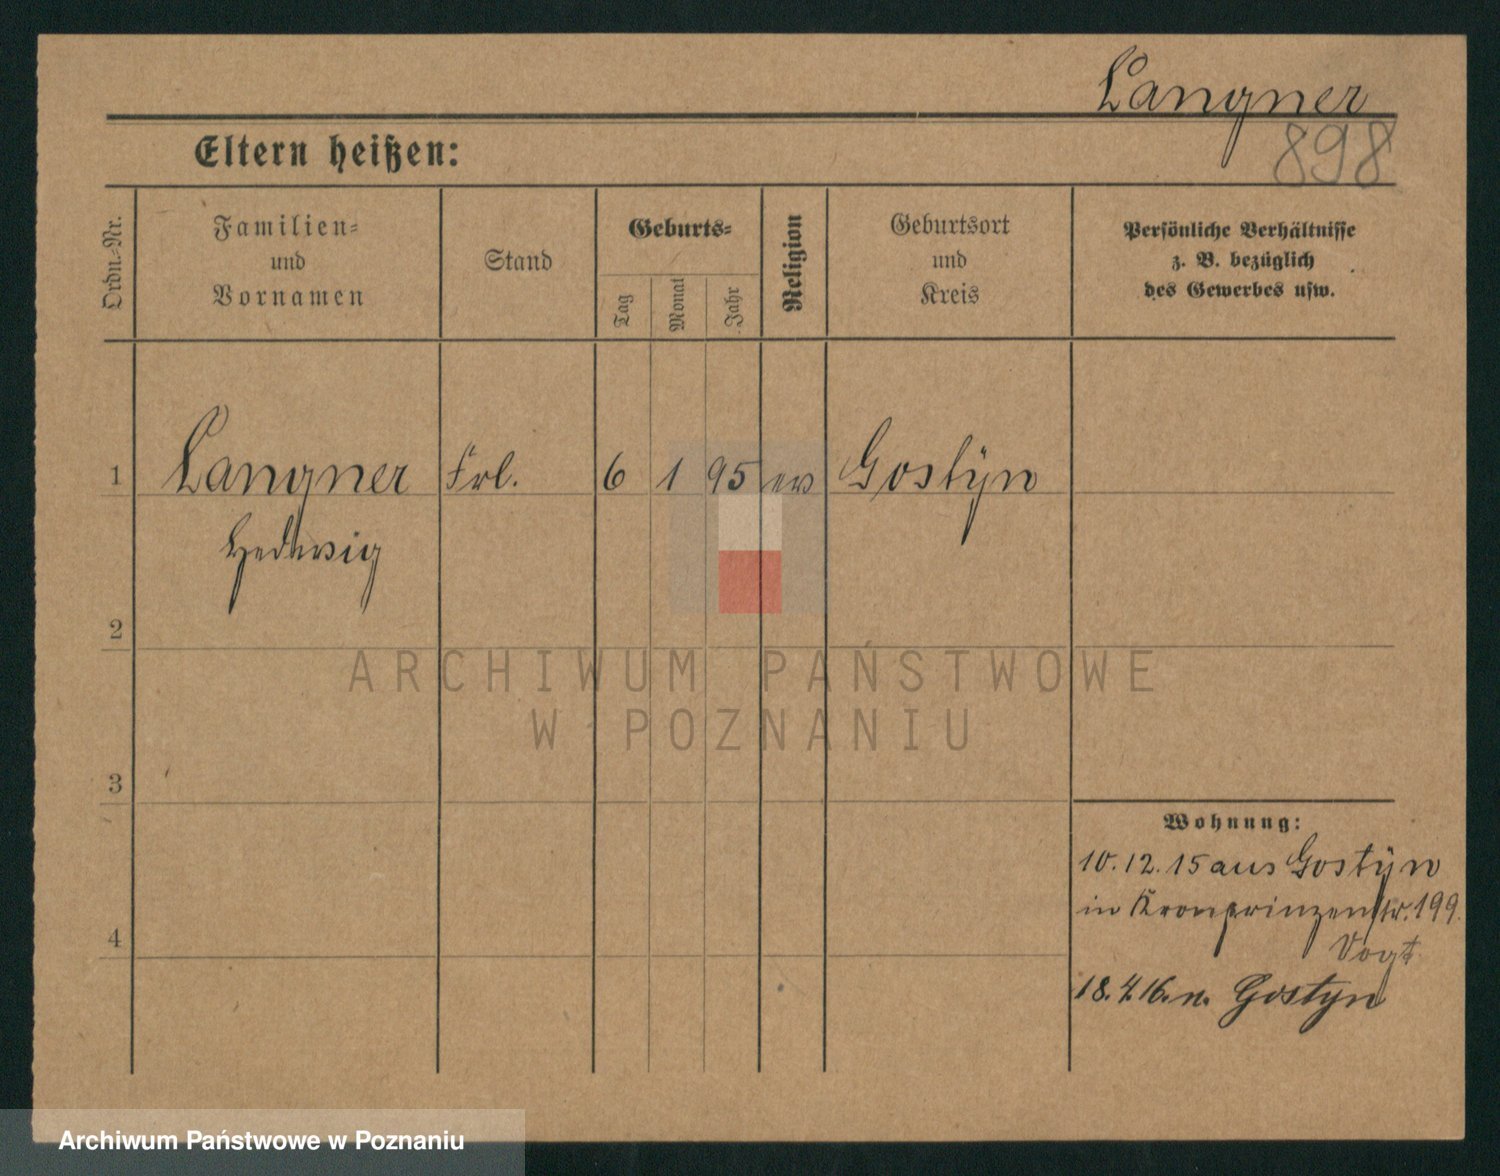 Langner
898
Eltern heißen:
Ordn.-Nr.
Familien-
und
Vornamen
Stand
Geburts-
Tag
Monat
Jahr
Religion
Geburtsort
und
Kreis
Persönliche Verhältnisse
z. B. bezüglich
des Gewerbes usw.
1 Langner Frl. 6 1 95 ev Gostÿn
Hedwig
2
3
4
Wohnung:
10.12.15 aus Gostÿn
in Kronprinzenstr. 199.
Vogt
18.4.16. n. Gostyn
ARCHIWUM PAŃSTWOWE
W POZNANIU
Archiwum Państwowe w Poznaniu